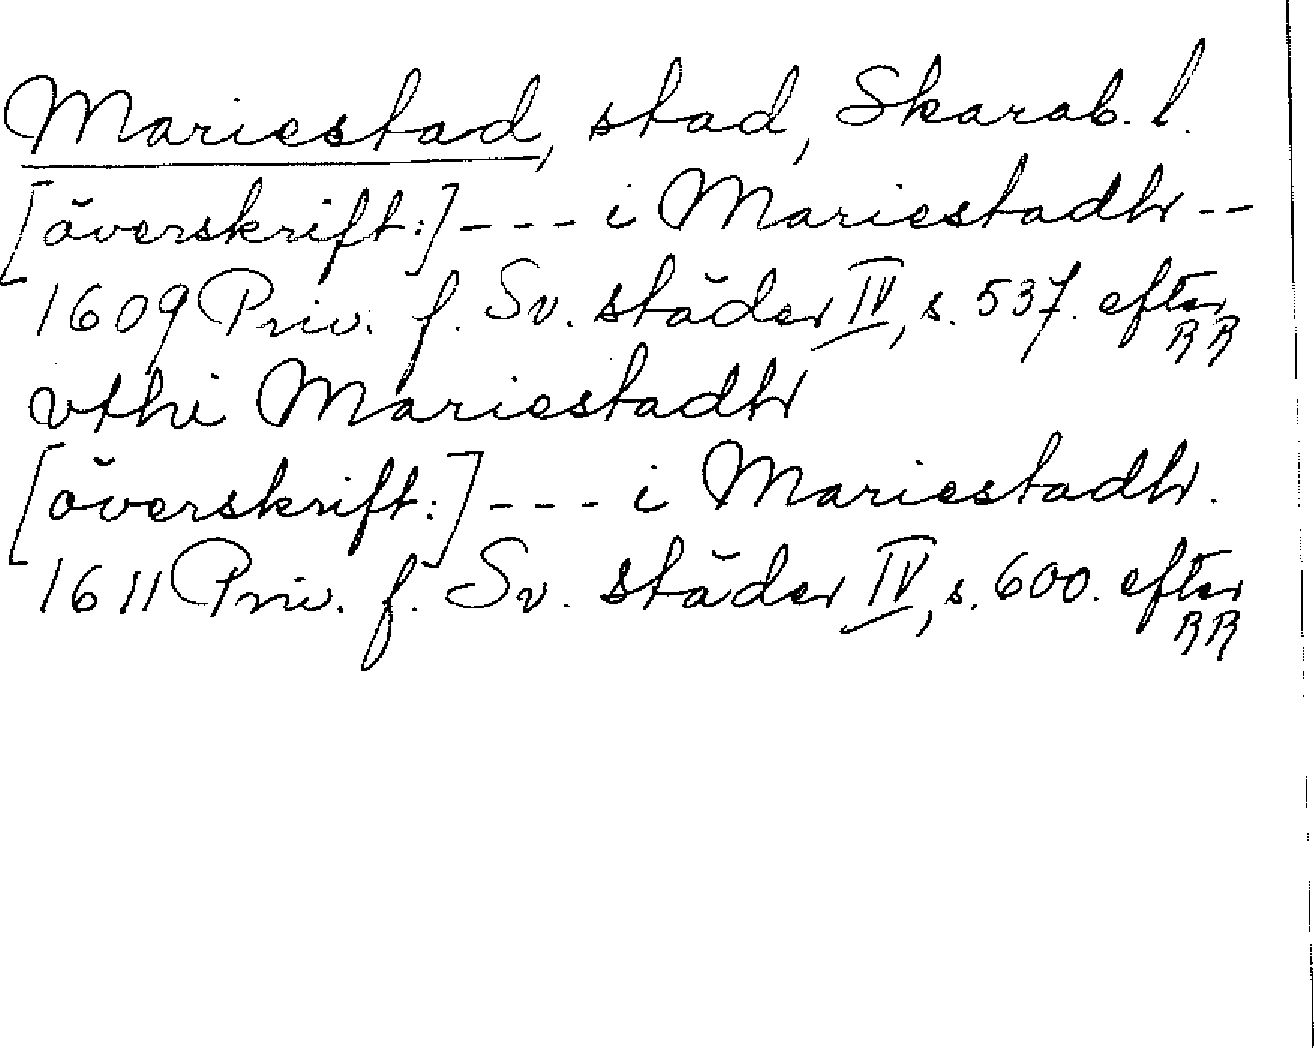 Mariestad, stad, Skarab. l.
[överskrift:] --- i Mariestadh --
1609 Priv. f. Sv. städer IV, s. 537. efter RR
vthi Mariestadh
[överskrift:] --- i Mariestadh.
1611 Priv. f. Sv. städer IV, s. 600. efter RR